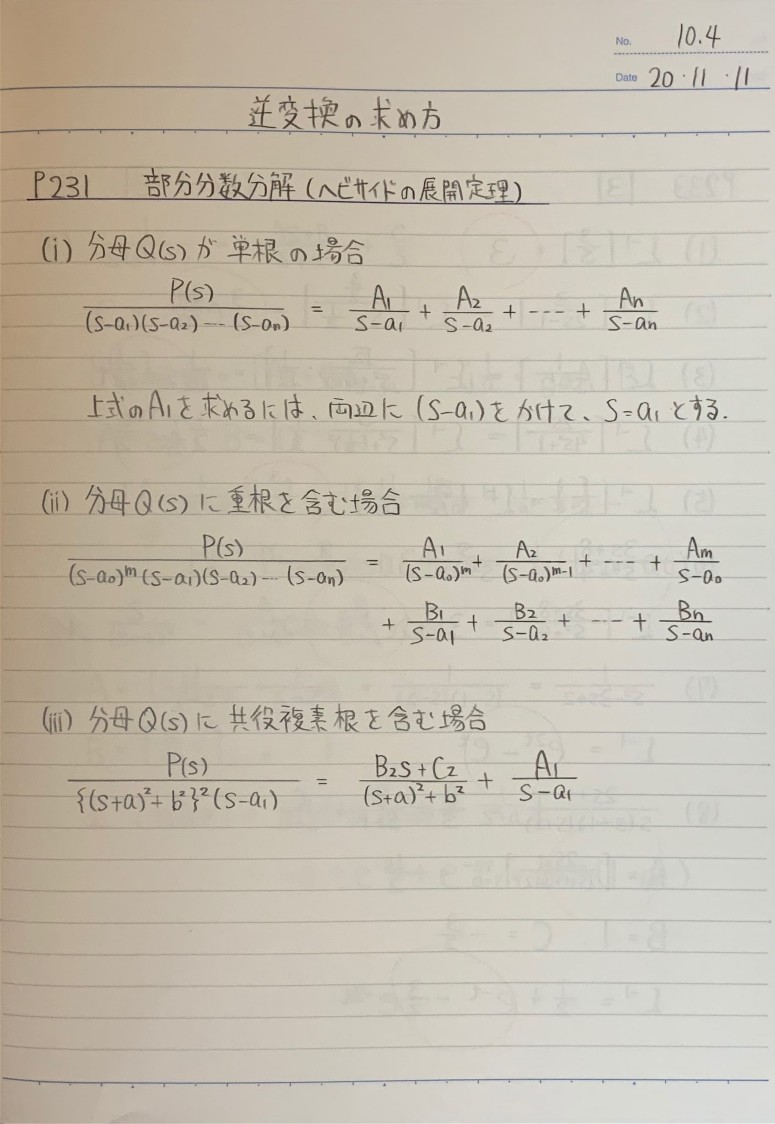 No. 10.4
Date 20・11・11
逆変換の求め方
P231 部分分数分解(ヘビサイドの展開定理)
(i) 分母Q(s)が単根の場合
P(s)/((s-a₁)(s-a₂)…(s-aₙ)) = A₁/(s-a₁) + A₂/(s-a₂) + --- + Aₙ/(s-aₙ)
上式のA₁を求めるには、両辺に(s-a₁)をかけて、s=a₁とする.
(ii) 分母Q(s)に重根を含む場合
P(s)/((s-a₀)ᵐ(s-a₁)(s-a₂)…(s-aₙ)) = A₁/(s-a₀)ᵐ + A₂/(s-a₀)ᵐ⁻¹ + --- + Aₘ/(s-a₀)
+ B₁/(s-a₁) + B₂/(s-a₂) + --- + Bₙ/(s-aₙ)
(iii) 分母Q(s)に共役複素根を含む場合
P(s)/({(s+a)²+b²}²(s-a₁)) = (B₂s+C₂)/((s+a)²+b²) + A₁/(s-a₁)